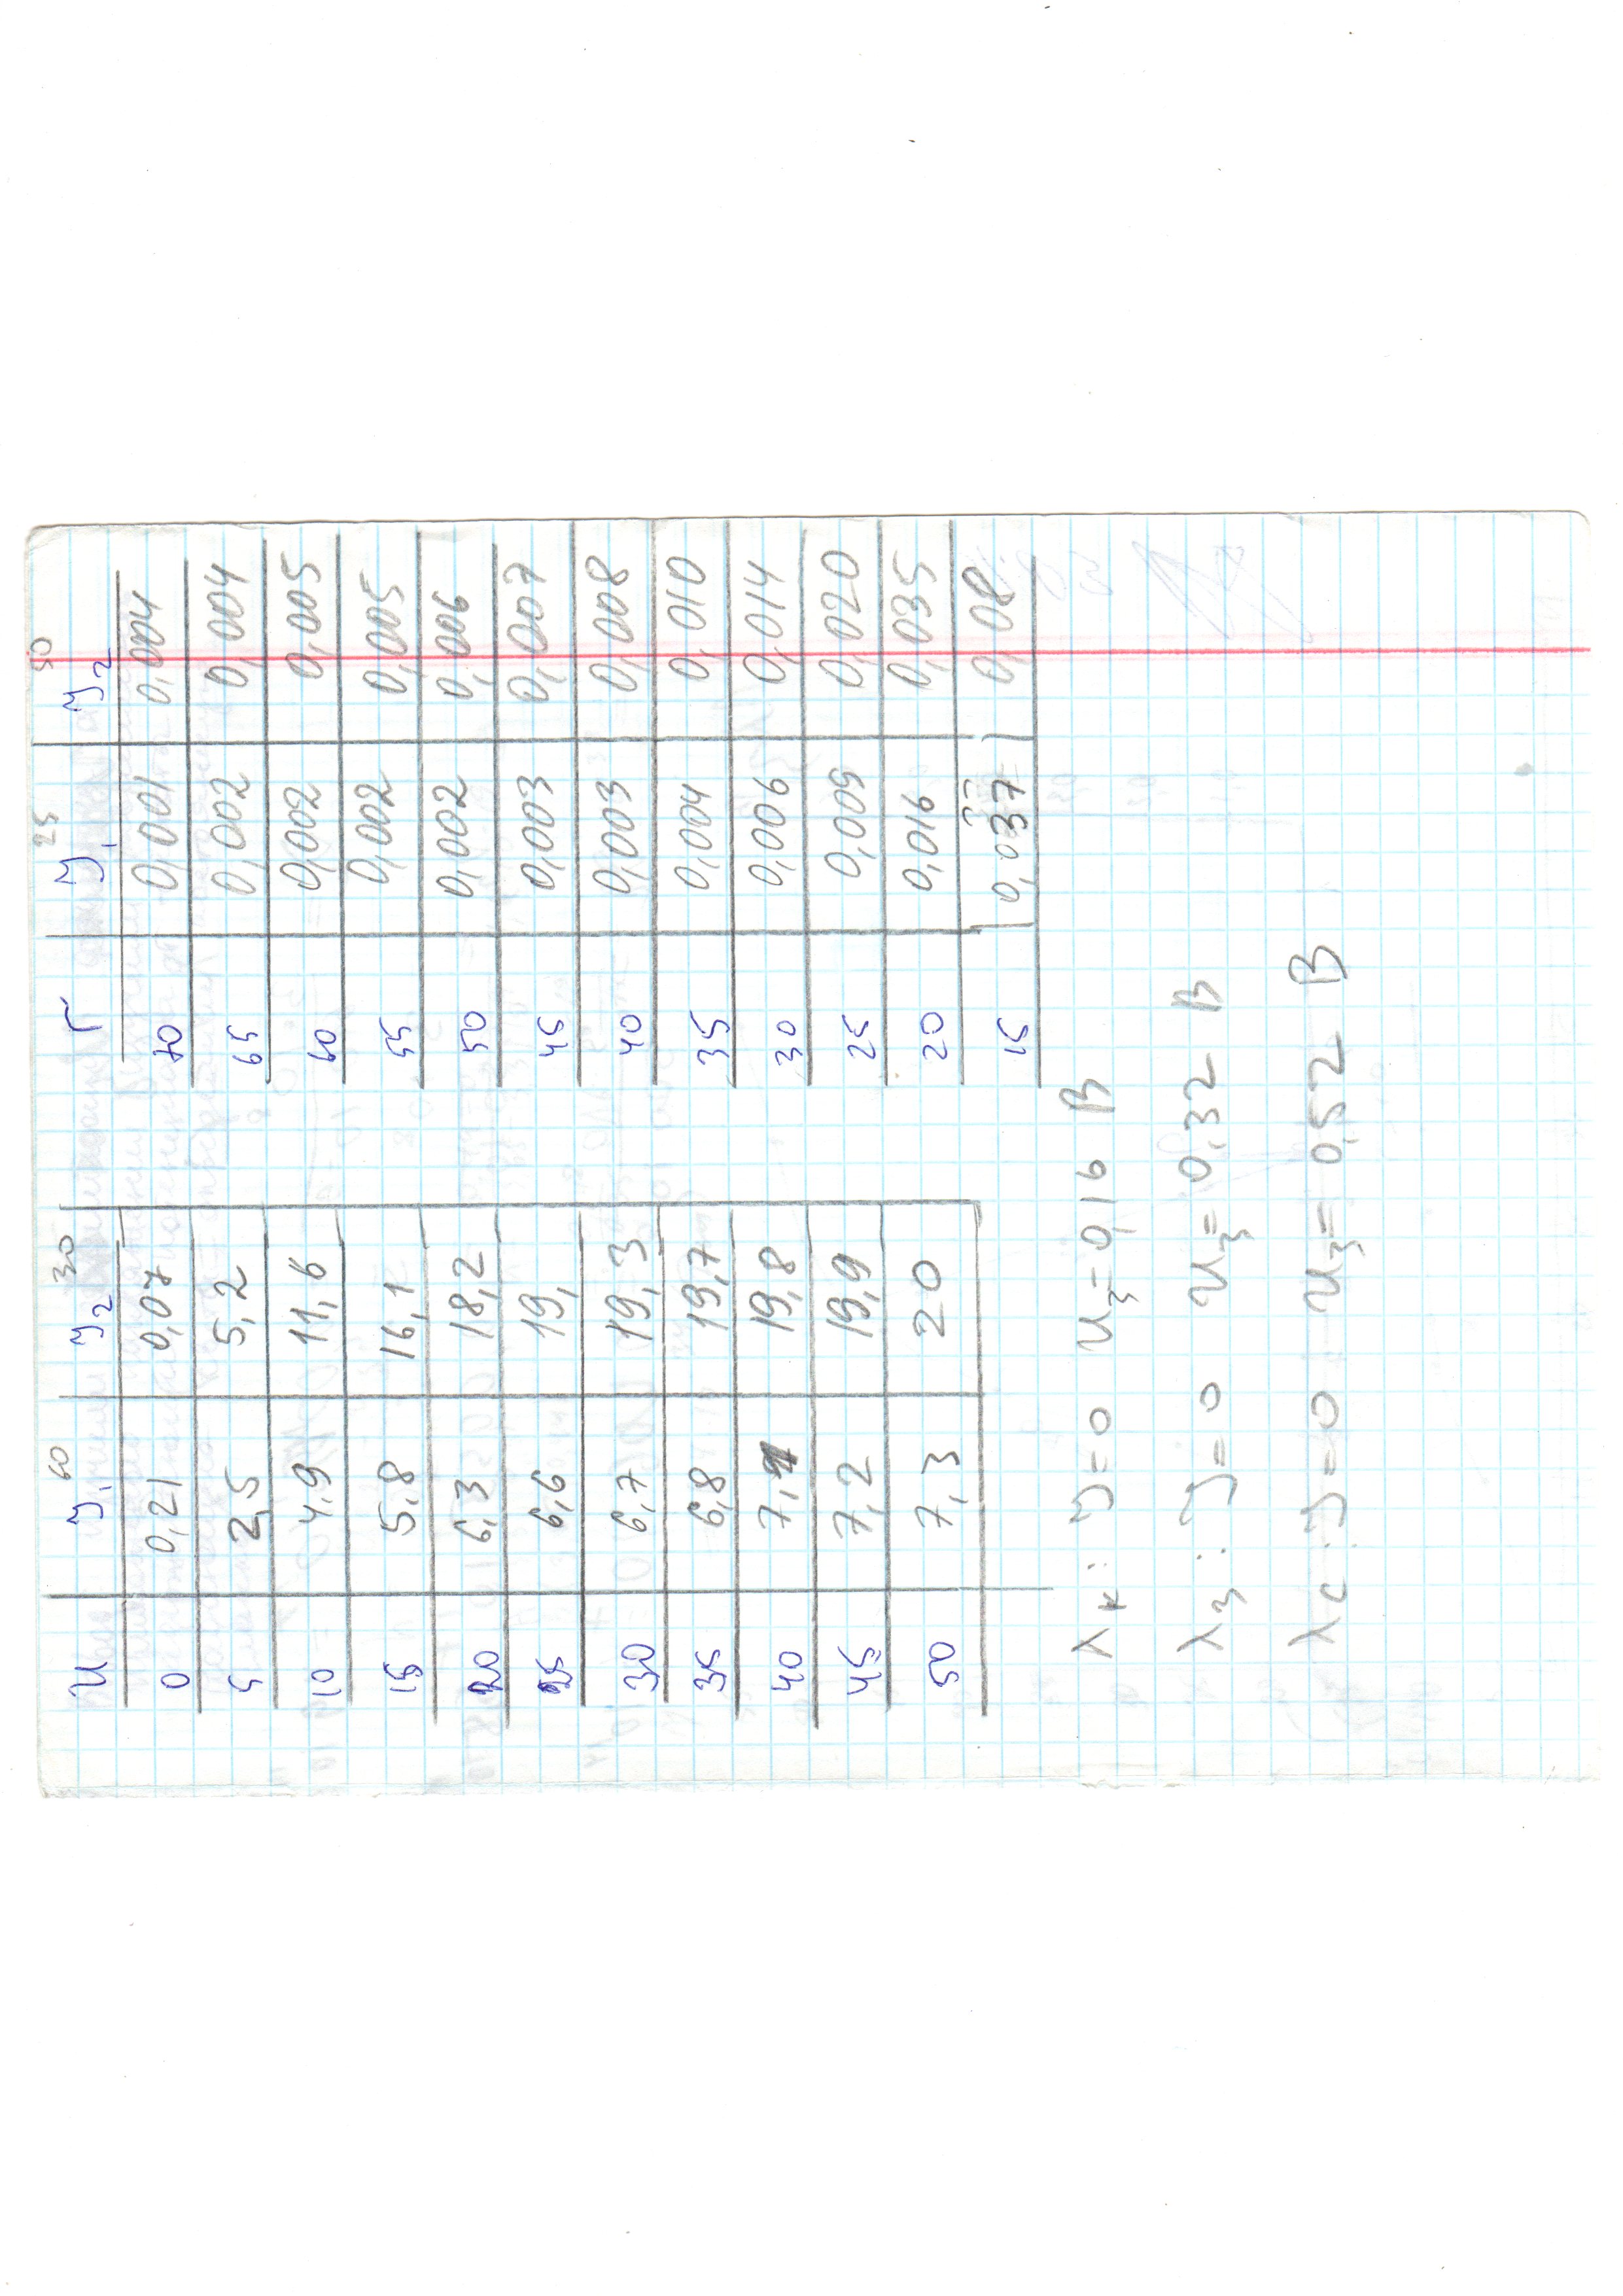 U J₁ 60 J₂ 30
0 0,21 0,07
5 2,5 5,2
10 4,9 11,6
15 5,8 16,1
20 6,3 18,2
25 6,6 19,
30 6,7 19,3
35 6,8 19,7
40 7,1 19,8
45 7,2 19,9
50 7,3 20
r J₁ 25 J₂ 50
70 0,001 0,004
65 0,002 0,004
60 0,002 0,005
55 0,002 0,005
50 0,002 0,006
45 0,003 0,007
40 0,003 0,008
35 0,004 0,010
30 0,006 0,014
25 0,009 0,020
20 0,016 0,035
15 0,037 0,08
λк: J=0 Uз=0,16 В
λз: J=0 Uз=0,32 В
λс: J=0 Uз=0,52 В